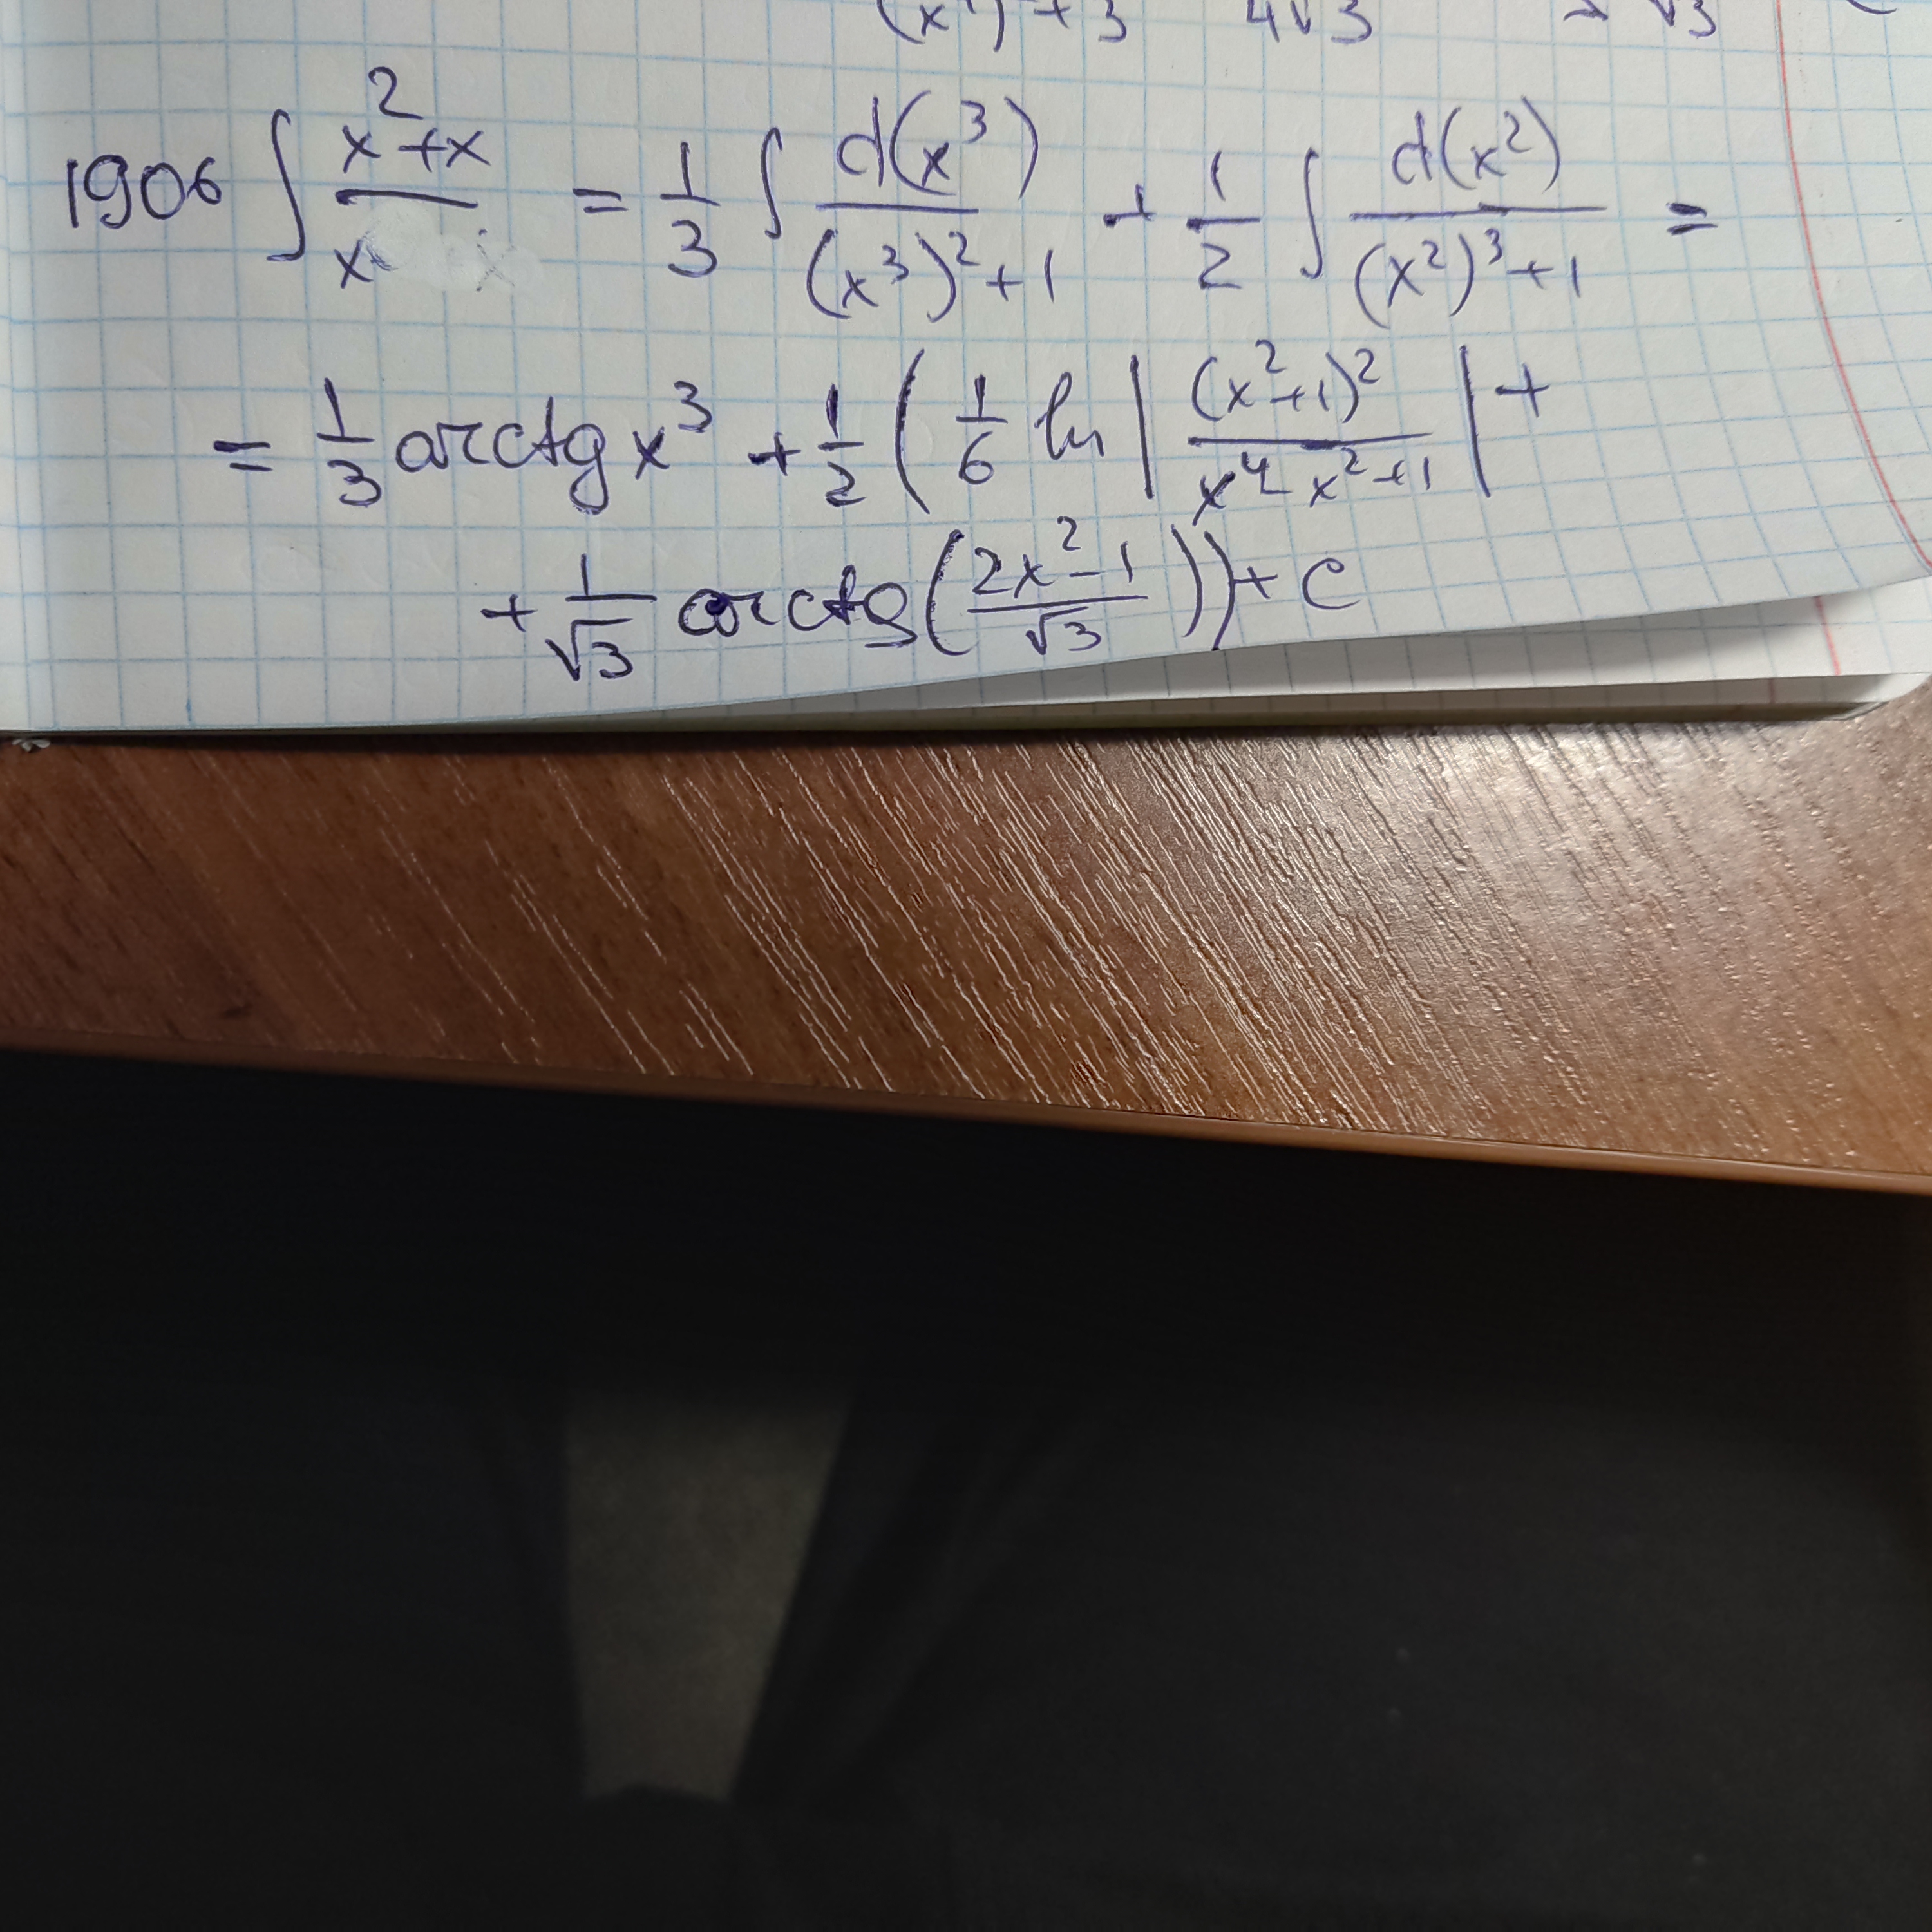 (x²)²+3 4√3 √3
1906 ∫ (x²+x)/x = 1/3 ∫ d(x³)/((x³)²+1) + 1/2 ∫ d(x²)/((x²)³+1) =
= 1/3 arctg x³ + 1/2 ( 1/6 ln | (x²+1)²/(x⁴ x²+1) | +
+ 1/√3 arctg( (2x²-1)/√3 )) + C